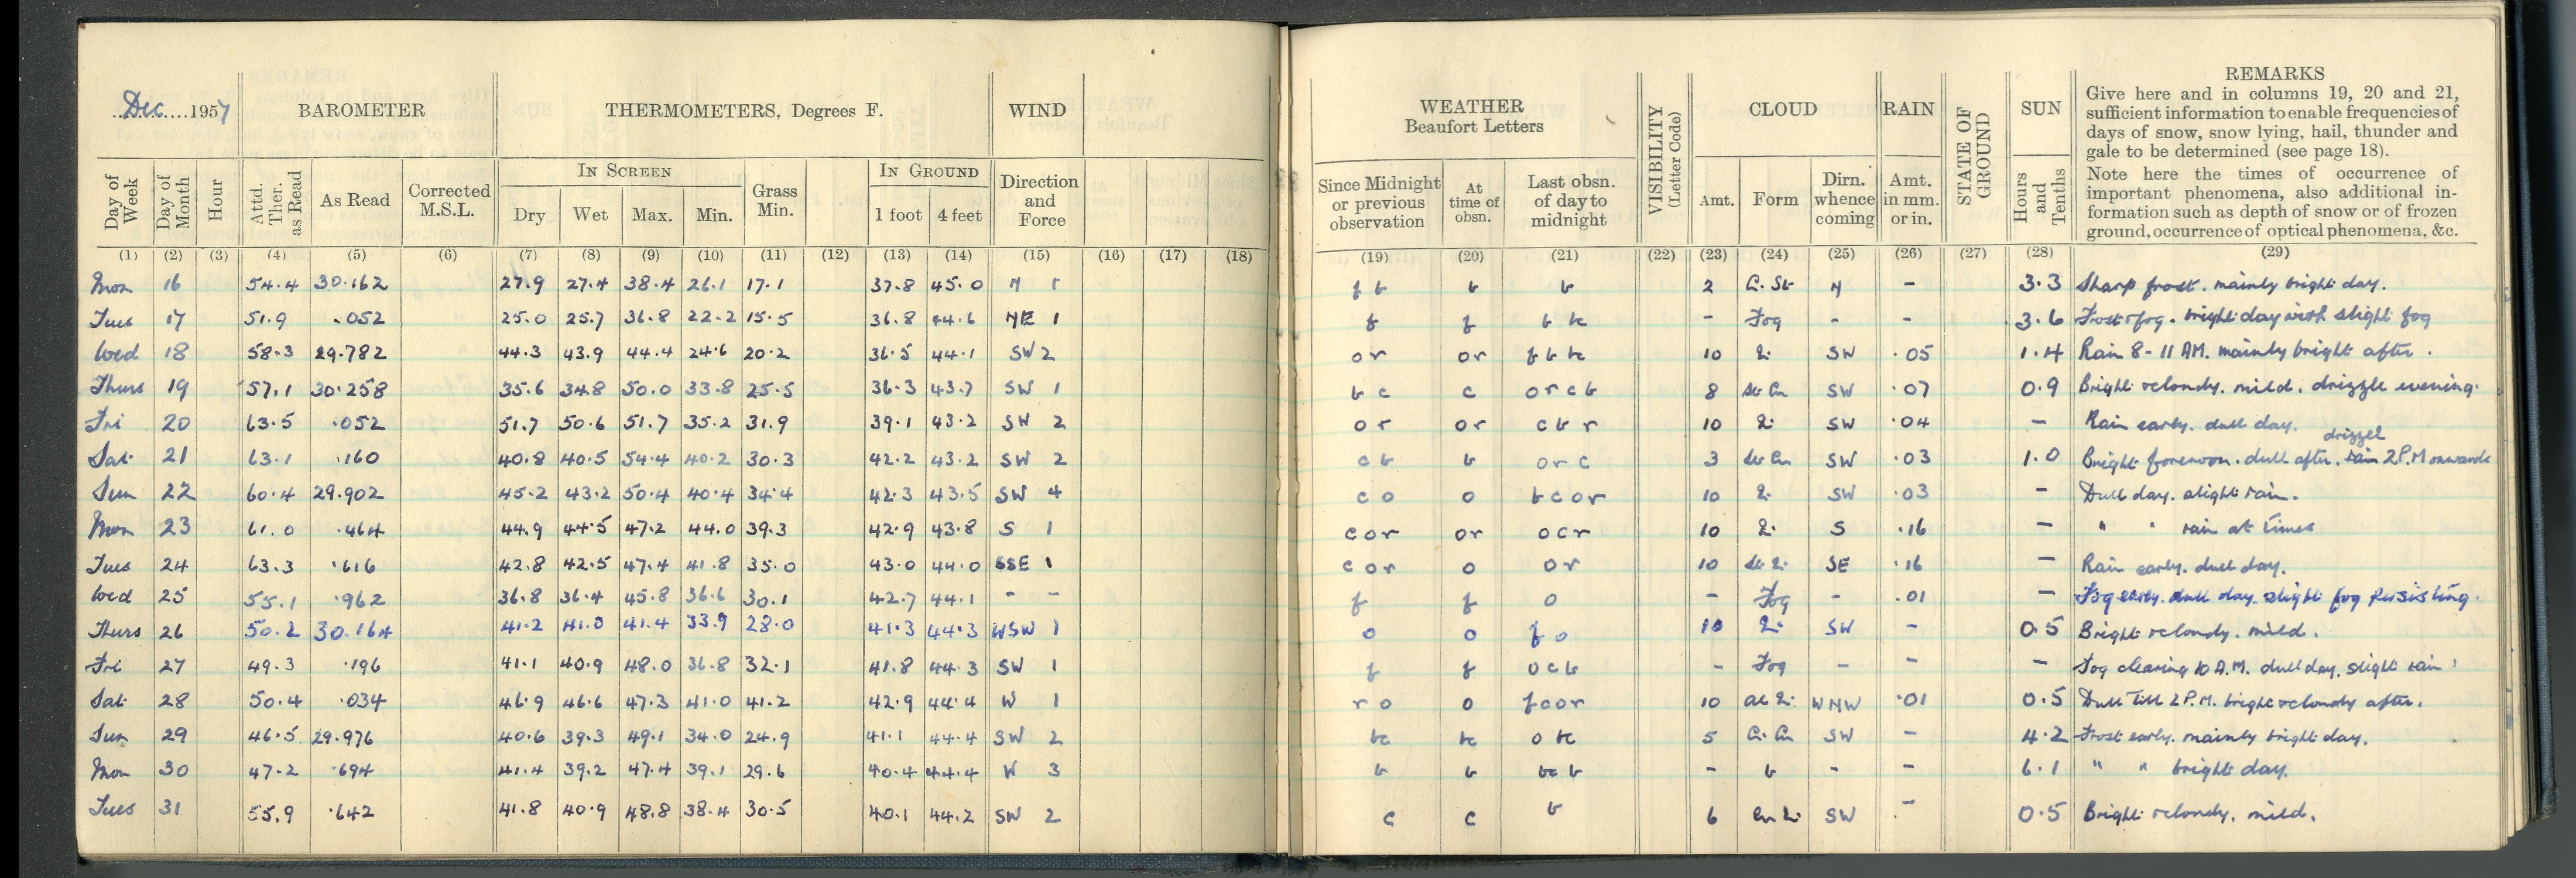 Dec 1957 BAROMETER THERMOMETERS, Degrees F. WIND
Day of Week Day of Month Hour Attd. Ther. as Read As Read Corrected M.S.L. IN SCREEN Dry Wet Max. Min. Grass Min. IN GROUND 1 foot 4 feet Direction and Force
(1) (2) (3) (4) (5) (6) (7) (8) (9) (10) (11) (12) (13) (14) (15) (16) (17) (18)
Mon 16 54.4 30.162 27.9 27.4 38.4 26.1 17.1 37.8 45.0 N 1
Tues 17 51.9 .052 25.0 25.7 36.8 22.2 15.5 36.8 44.6 NE 1
Wed 18 58.3 29.782 44.3 43.9 44.4 24.6 20.2 36.5 44.1 SW 2
Thurs 19 57.1 30.258 35.6 34.8 50.0 33.8 25.5 36.3 43.7 SW 1
Fri 20 63.5 .052 51.7 50.6 51.7 35.2 31.9 39.1 43.2 SW 2
Sat 21 63.1 .160 40.8 40.5 54.4 40.2 30.3 42.2 43.2 SW 2
Sun 22 60.4 29.902 45.2 43.2 50.4 40.4 34.4 42.3 43.5 SW 4
Mon 23 61.0 .464 44.9 44.5 47.2 44.0 39.3 42.9 43.8 S 1
Tues 24 63.3 .616 42.8 42.5 47.4 41.8 35.0 43.0 44.0 SSE 1
Wed 25 55.1 .962 36.8 36.4 45.8 36.6 30.1 42.7 44.1 - -
Thurs 26 50.2 30.164 41.2 41.0 41.4 33.9 28.0 41.3 44.3 WSW 1
Fri 27 49.3 .196 41.1 40.9 48.0 36.8 32.1 41.8 44.3 SW 1
Sat 28 50.4 .034 46.9 46.6 47.3 41.0 41.2 42.9 44.4 W 1
Sun 29 46.5 29.976 40.6 39.3 49.1 34.0 24.9 41.1 44.4 SW 2
Mon 30 47.2 .694 41.4 39.2 47.4 39.1 29.6 40.4 44.4 W 3
Tues 31 55.9 .642 41.8 40.9 48.8 38.4 30.5 40.1 44.2 SW 2
WEATHER Beaufort Letters VISIBILITY (Letter Code) CLOUD RAIN STATE OF GROUND SUN REMARKS
Give here and in columns 19, 20 and 21,
sufficient information to enable frequencies of
days of snow, snow lying, hail, thunder and
gale to be determined (see page 18).
Note here the times of occurrence of
important phenomena, also additional in-
formation such as depth of snow or of frozen
ground, occurrence of optical phenomena, &c.
Since Midnight or previous observation At time of obsn. Last obsn. of day to midnight Amt. Form Dirn. whence coming Amt. in mm. or in. Hours and Tenths
(19) (20) (21) (22) (23) (24) (25) (26) (27) (28) (29)
f b b b 2 Ci. St N - 3.3 Sharp frost. mainly bright day.
f f b bc - Fog - - 3.6 Frost & fog. bright day with slight fog
or or bc 10 SW .05 1.4 Rain 8-11 AM. mainly bright after.
b c c o r c b 8 St Cu SW .07 0.9 Bright & cloudy. mild. drizzle evening.
o r or c b r 10 SW .04 - Rain early. dull day.
c b b or c 3 St Cu SW .03 1.0 Bright forenoon. dull after. rain drizzel 2 P.M onwards
c o o b c o r 10 SW .03 - Dull day. slight rain.
c o r or o c r 10 S .16 - " " rain at times
c o r o o r 10 SE .16 - Rain early. dull day.
f f o - Fog - .01 - Fog early. dull day. slight fog persisting.
o o f o 10 SW - 0.5 Bright & cloudy. mild.
f f o c b - Fog - - - Fog clearing 10 A.M. dull day. slight rain
r o o f c o r 10 WNW .01 0.5 Dull till 2 P.M. bright & cloudy after.
bc bc o bc 5 Ci. Cu SW - 4.2 Frost early. mainly bright day.
b b bc b - b - - 6.1 " " bright day.
c c b 6 SW - 0.5 Bright & cloudy. mild.